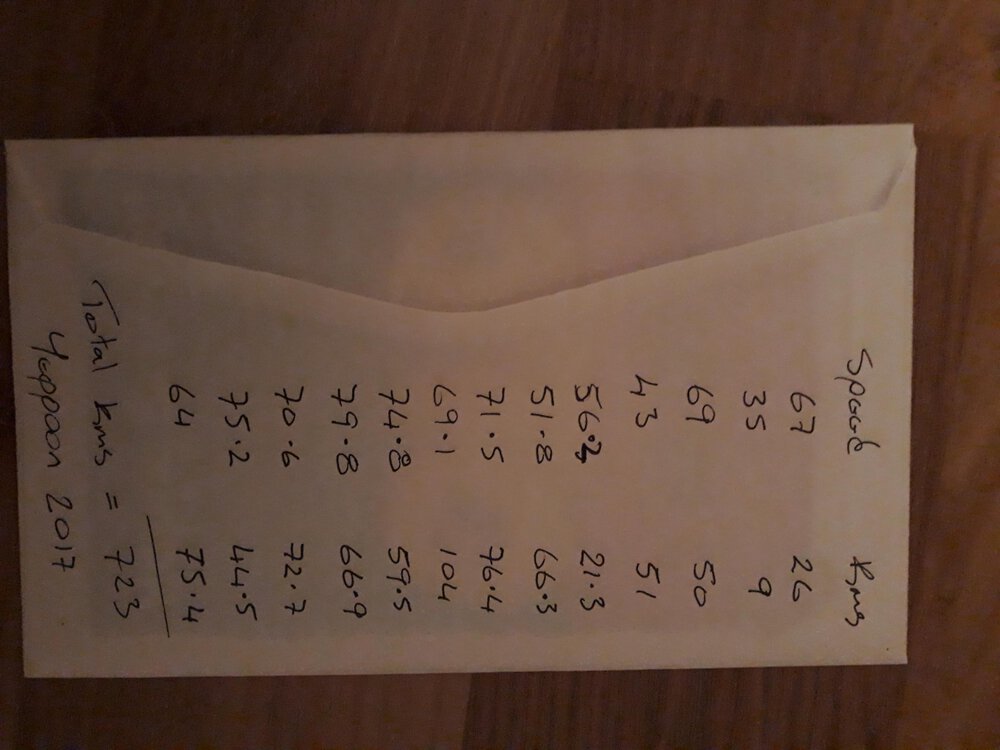 Speed Kms
67 26
35 9
69 50
43 51
56.2 21.3
51.8 66.3
71.5 76.4
69.1 104
74.8 59.5
79.8 66.9
70.6 72.7
75.2 44.5
64 75.4
Total kms = 723
Yeppoon 2017